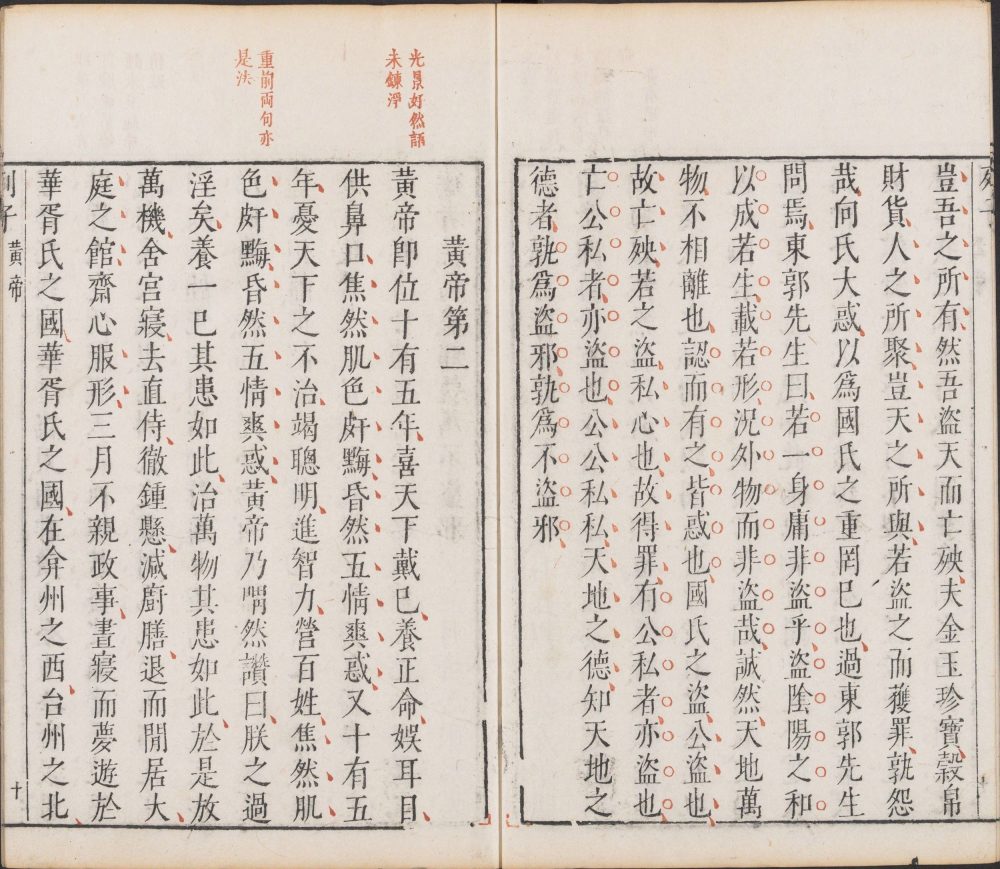 豈吾之所有然吾盜天而亡殃夫金玉珍寶穀帛
財貨人之所聚豈天之所與若盜之而獲罪孰怨
哉向氏大惑以為國氏之重罔已也過東郭先生
問焉東郭先生曰若一身庸非盜乎盜陰陽之和
以成若生載若形況外物而非盜哉誠然天地萬
物不相離也認而有之皆惑也國氏之盜公盜也
故亡殃若之盜私心也故得罪有公私者亦盜也
亡公私者亦盜也公公私私天地之德知天地之
德者孰為盜邪孰為不盜邪
光景好然語
未鍊淨
重前兩句亦
是法
黃帝第二
黃帝卽位十有五年喜天下戴已養正命娛耳目
供鼻口焦然肌色皯黣昏然五情爽惑又十有五
年憂天下之不治竭聰明進智力營百姓焦然肌
色皯黣昏然五情爽惑黃帝乃喟然讚曰朕之過
淫矣養一已其患如此治萬物其患如此於是放
萬機舍宮寢去直侍徹鍾懸減廚膳退而閒居大
庭之館齋心服形三月不親政事晝寢而夢遊於
華胥氏之國華胥氏之國在弇州之西台州之北
列子 黃帝 十